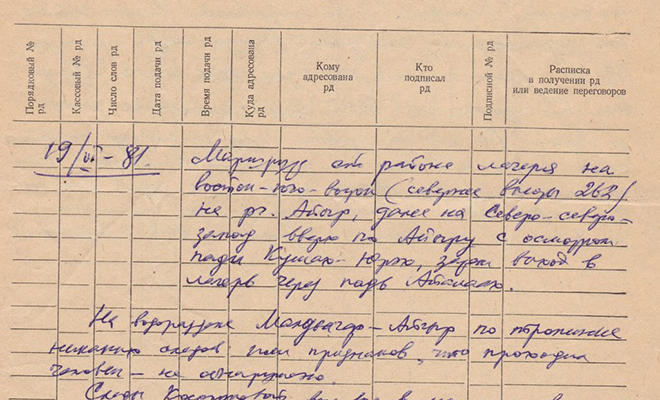 Порядковый № рд
Кассовый № рд
Число слов рд
Дата подачи рд
Время подачи рд
Куда адресована рд
Кому адресована рд
Кто подписал рд
Подписной № рд
Расписка в получении рд или ведение переговоров
19/VI-81. Маршрут от района лагеря на
восток-юго-восток (севернее высоты 262)
на р. Айыр, далее на Северо-северо-
запад вверх по Айыру с осмотром
пади Кушак-Юряк, затем выход в
лагерь через падь
На водоразделе Айыр по тропинке
никаких следов или признаков, что проходил
человек – не обнаружено.
Следы